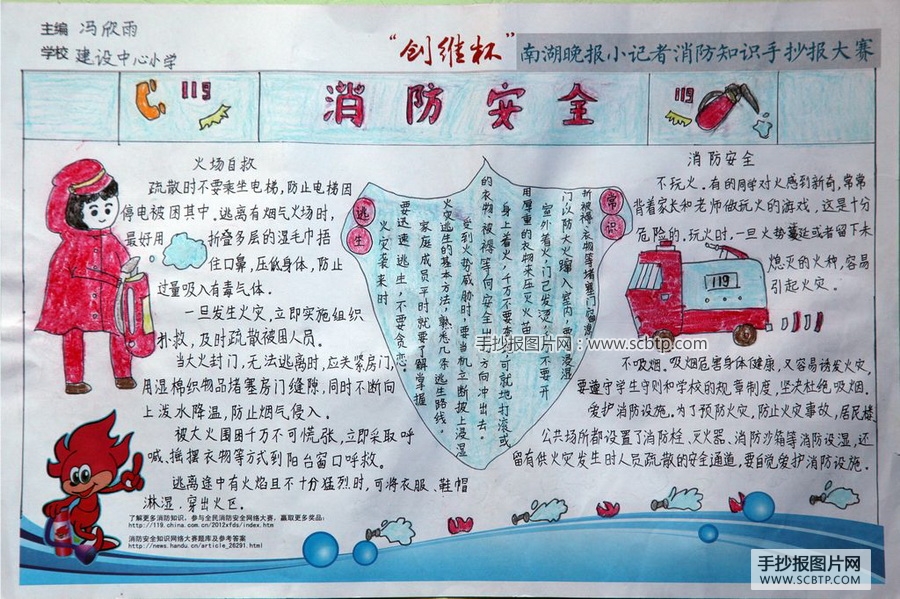 主编 冯欣雨
学校 建设中心小学
“创维杯”南湖晚报小记者消防知识手抄报大赛
119
消防安全
119
火场自救
疏散时不要乘坐电梯,防止电梯因
停电被困其中.逃离有烟气火场时,
最好用 折叠多层的湿毛巾捂
住口鼻,压低身体,防止
过量吸入有毒气体.
一旦发生火灾,立即实施组织
扑救,及时疏散被困人员.
当大火封门,无法逃离时,应关紧房门,
用湿棉织物品堵塞房门缝隙,同时不断向
上泼水降温,防止烟气侵入.
被大火围困千万不可慌张,立即采取呼
喊、摇摆衣物等方式到阳台窗口呼救.
逃离途中有火焰且不十分猛烈时,可将衣服、鞋帽
淋湿.穿出火区.
逃生
常识
火灾袭来时
要迅速逃生,不要贪恋.
家庭成员平时就要了解掌握
火灾逃生的基本方法,熟悉几条逃生路线.
受到火势威胁时,要当机立断披上浸湿
的衣物、被褥等向安全出口方向冲出去.
身上着火,千万不要奔跑,可就地打滚或
用厚重的衣物来压灭火苗.
室外着火,门已发烫,千万不要开
门以防大火蹿入室内,要用浸湿
消防安全
不玩火.有的同学对火感到新奇,常常
背着家长和老师做玩火的游戏,这是十分
危险的.玩火时,一旦火势蔓延或者留下未
熄灭的火种,容易
引起火灾.
119
不吸烟.吸烟危害身体健康,又容易诱发火灾,
要遵守学生守则和学校的规章制度,坚决杜绝吸烟.
爱护消防设施.为了预防火灾,防止火灾事故,居民楼、
公共场所都设置了消防栓、灭火器、消防沙箱等消防设湿,还
留有供火灾发生时人员疏散的安全通道,要自觉爱护消防设施.
手抄报图片网:www.scbtp.com
了解更多消防知识,参与全民消防安全网络大赛,赢取更多奖品:
http://119.china.com.cn/2012xfds/index.htm
消防安全知识网络大赛题库及参考答案
http://news.handu.cn/article_26291.html
手抄报图片网
WWW.SCBTP.COM